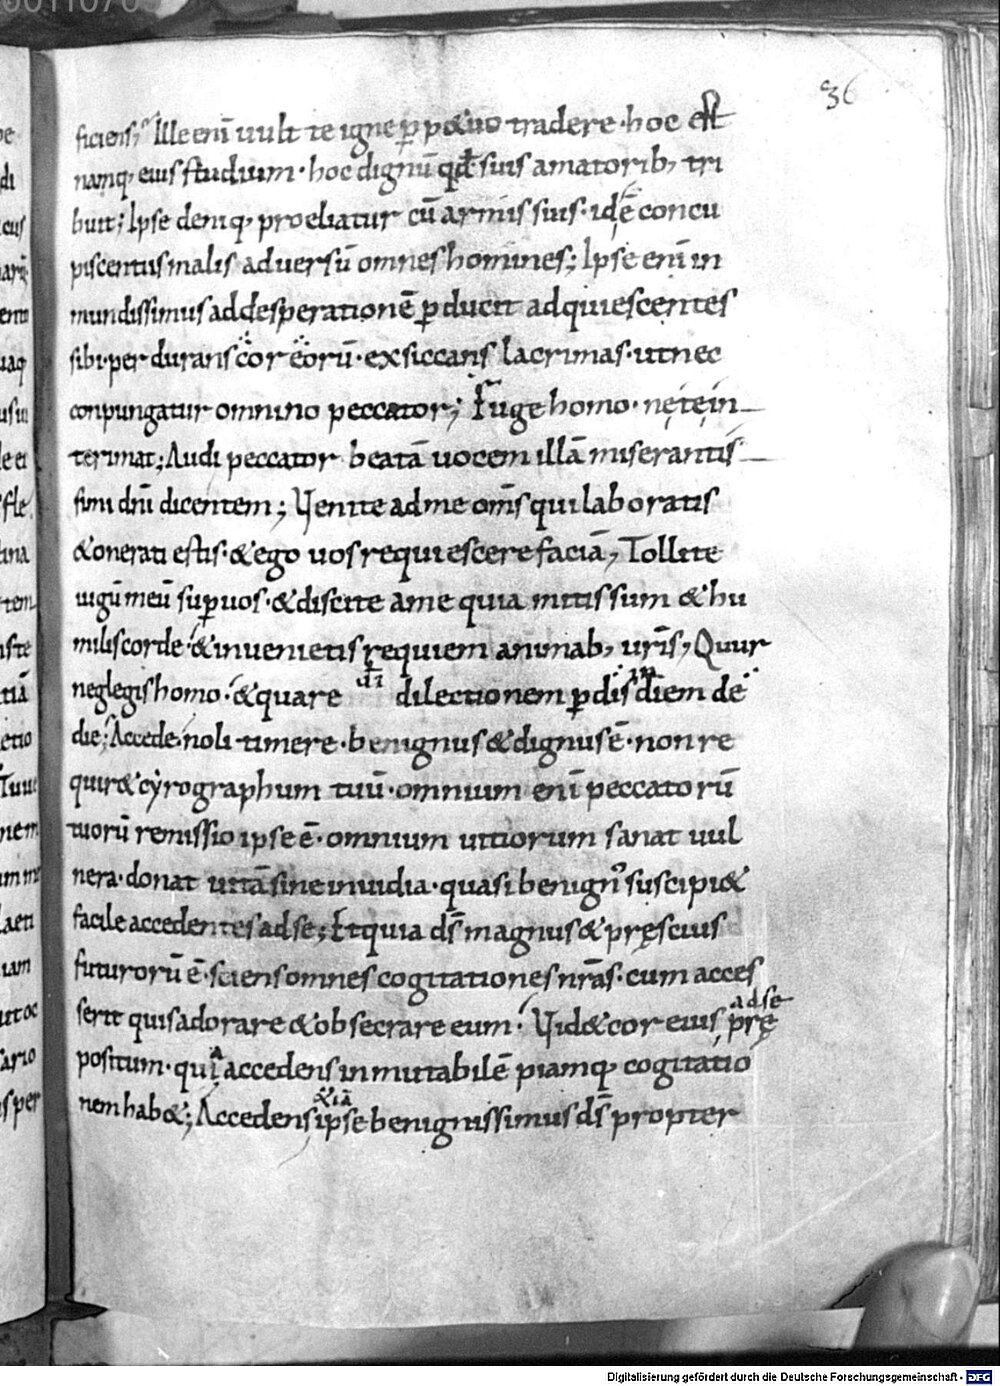 36
ficiens; Ille enī uult te igne ꝑpæuo tradere · hoc est
namq; eius studium · hoc dignū qđ suis amatorib; tri
buit; Ipse deniq; proeliatur cū armis suis · idē concu
piscentiis malis aduersū omnes homines; Ipse enī in
mundissimus ad desperationē ꝑducit adquiescentes
sibi · per durans cor eorū · exsiccans lacrimas · ut nec
conpungatur omnino peccator; Fuge homo · ne te in
terimat; Audi peccator beatā uocem illā miserantis
simi dnī dicentem; Venite ad me om̄s qui laboratis
& onerati estis · & ego uos requiescere faciā, Tollite
iugū meū suꝑ uos · & discite a me quia mitis sum & hu
milis corde · & inuenietis requiem animab; uris̄, Quur
neglegis homo · & quare dī dilectionem ꝑdis diem de
die; Accede · noli timere · benignus & dignus ē · non re
quir& cyrographum tuū · omnium enī peccatorū
tuorū remissio ipse ē · omnium uitiorum sanat uul
nera · donat uitā sine inuidia · quasi benign᾽ suscipi&
facile accedentes ad se; Et quia ds̄ magnus & pręscius
futurorū ē · sciens omnes cogitationes nrās · cum acces
serit quis adorare & obsecrare eum · Vid& cor eius prę
ad se
positum · quia accedens inmutabilē piamq; cogitatio
nem hab&; Accedens ipse benignissimus ds̄ propter
Digitalisierung gefördert durch die Deutsche Forschungsgemeinschaft - DFG